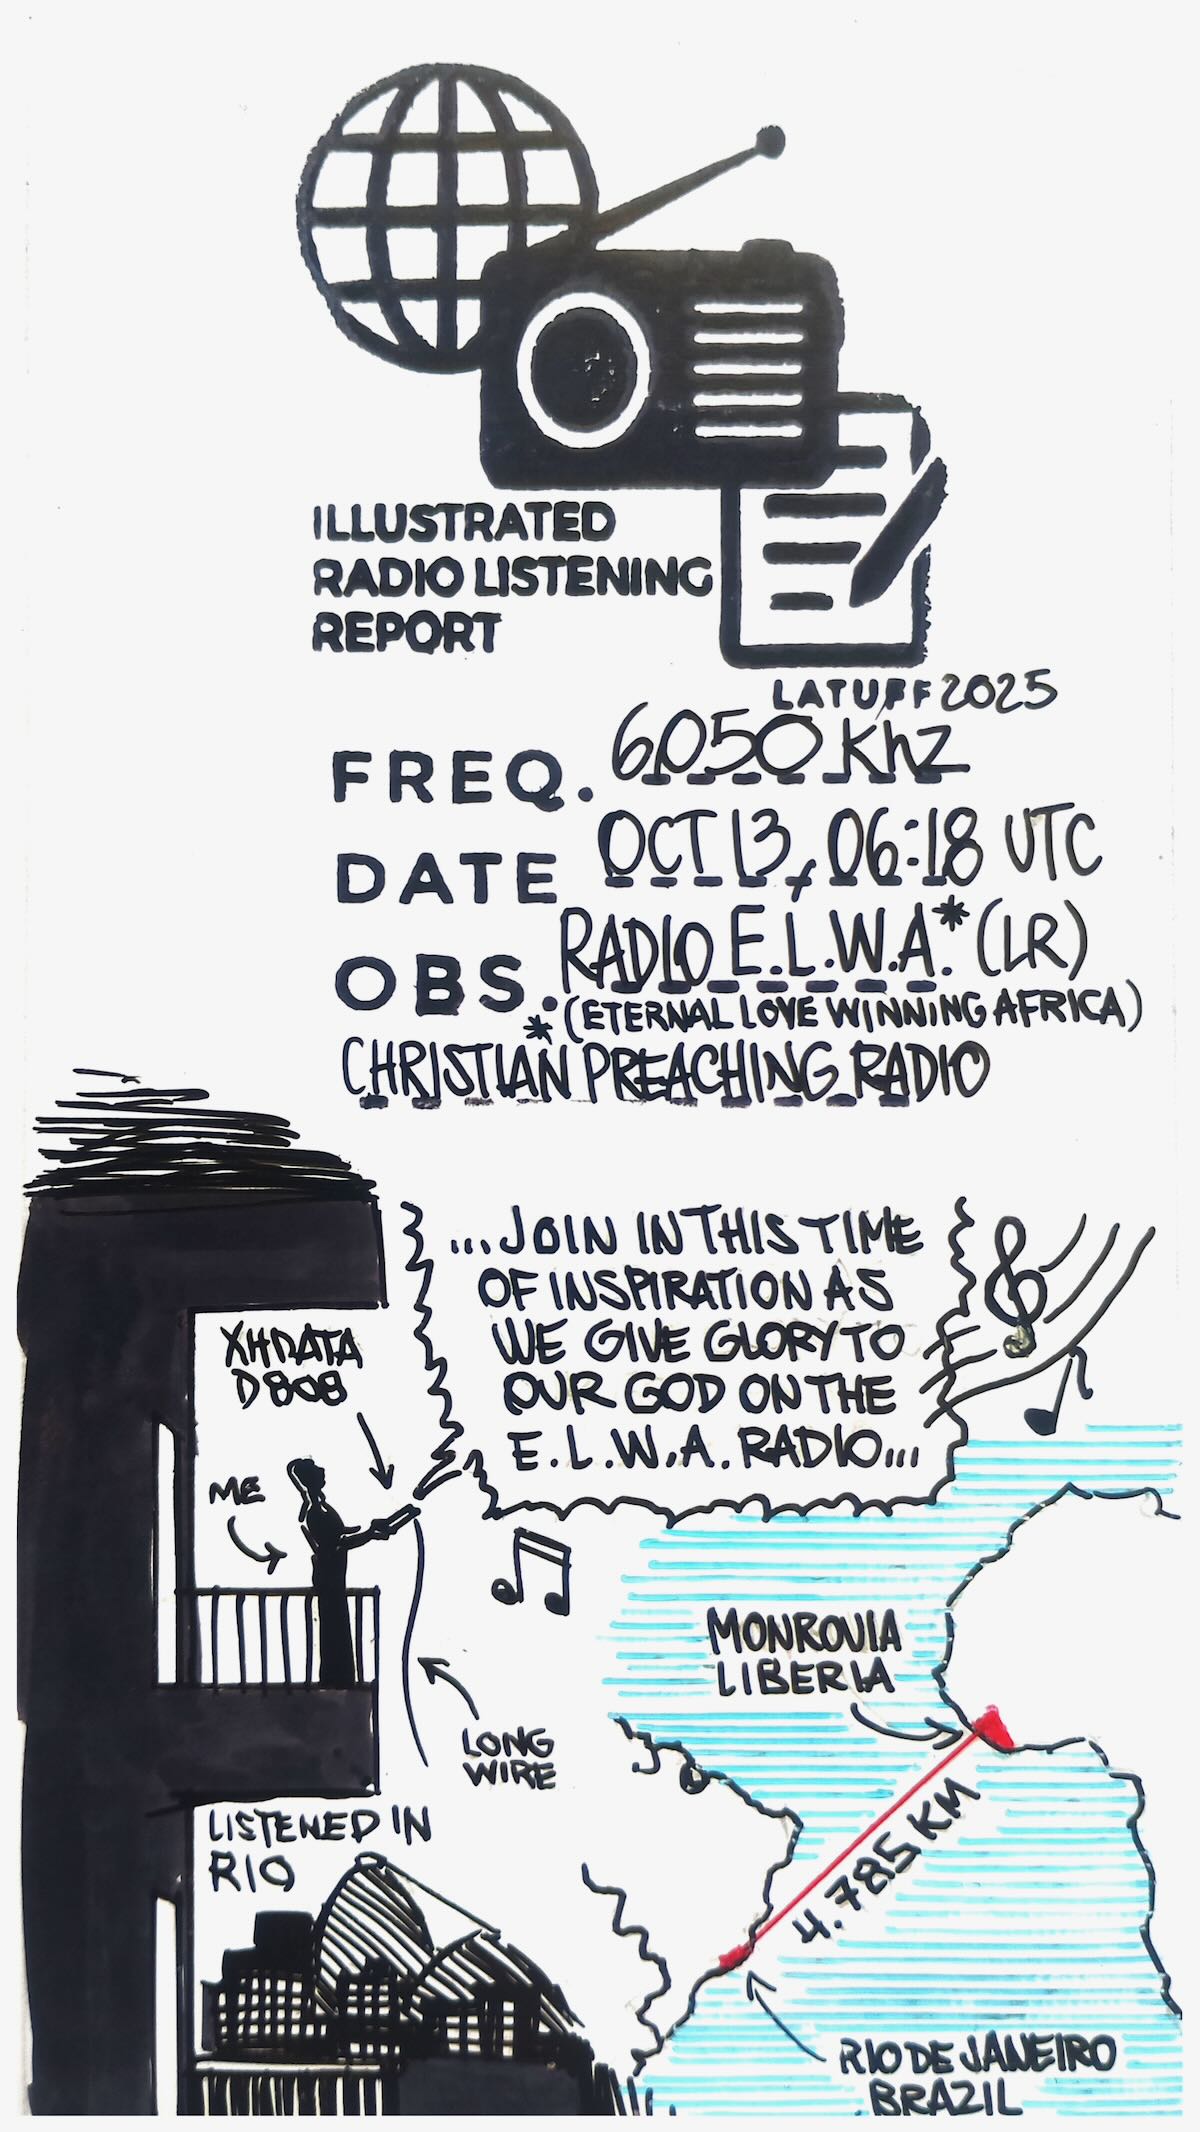 ILLUSTRATED
RADIO LISTENING
REPORT
LATUFF 2025
FREQ. 6050 Khz
DATE OCT 13, 06:18 UTC
OBS. RADIO E.L.W.A.* (LR)
*(ETERNAL LOVE WINNING AFRICA)
CHRISTIAN PREACHING RADIO
...JOIN IN THIS TIME
OF INSPIRATION AS
WE GIVE GLORY TO
OUR GOD ON THE
E.L.W.A. RADIO...
XHDATA
D808
ME
LONG
WIRE
MONROVIA
LIBERIA
4.785 KM
LISTENED IN
RIO
RIO DE JANEIRO
BRAZIL